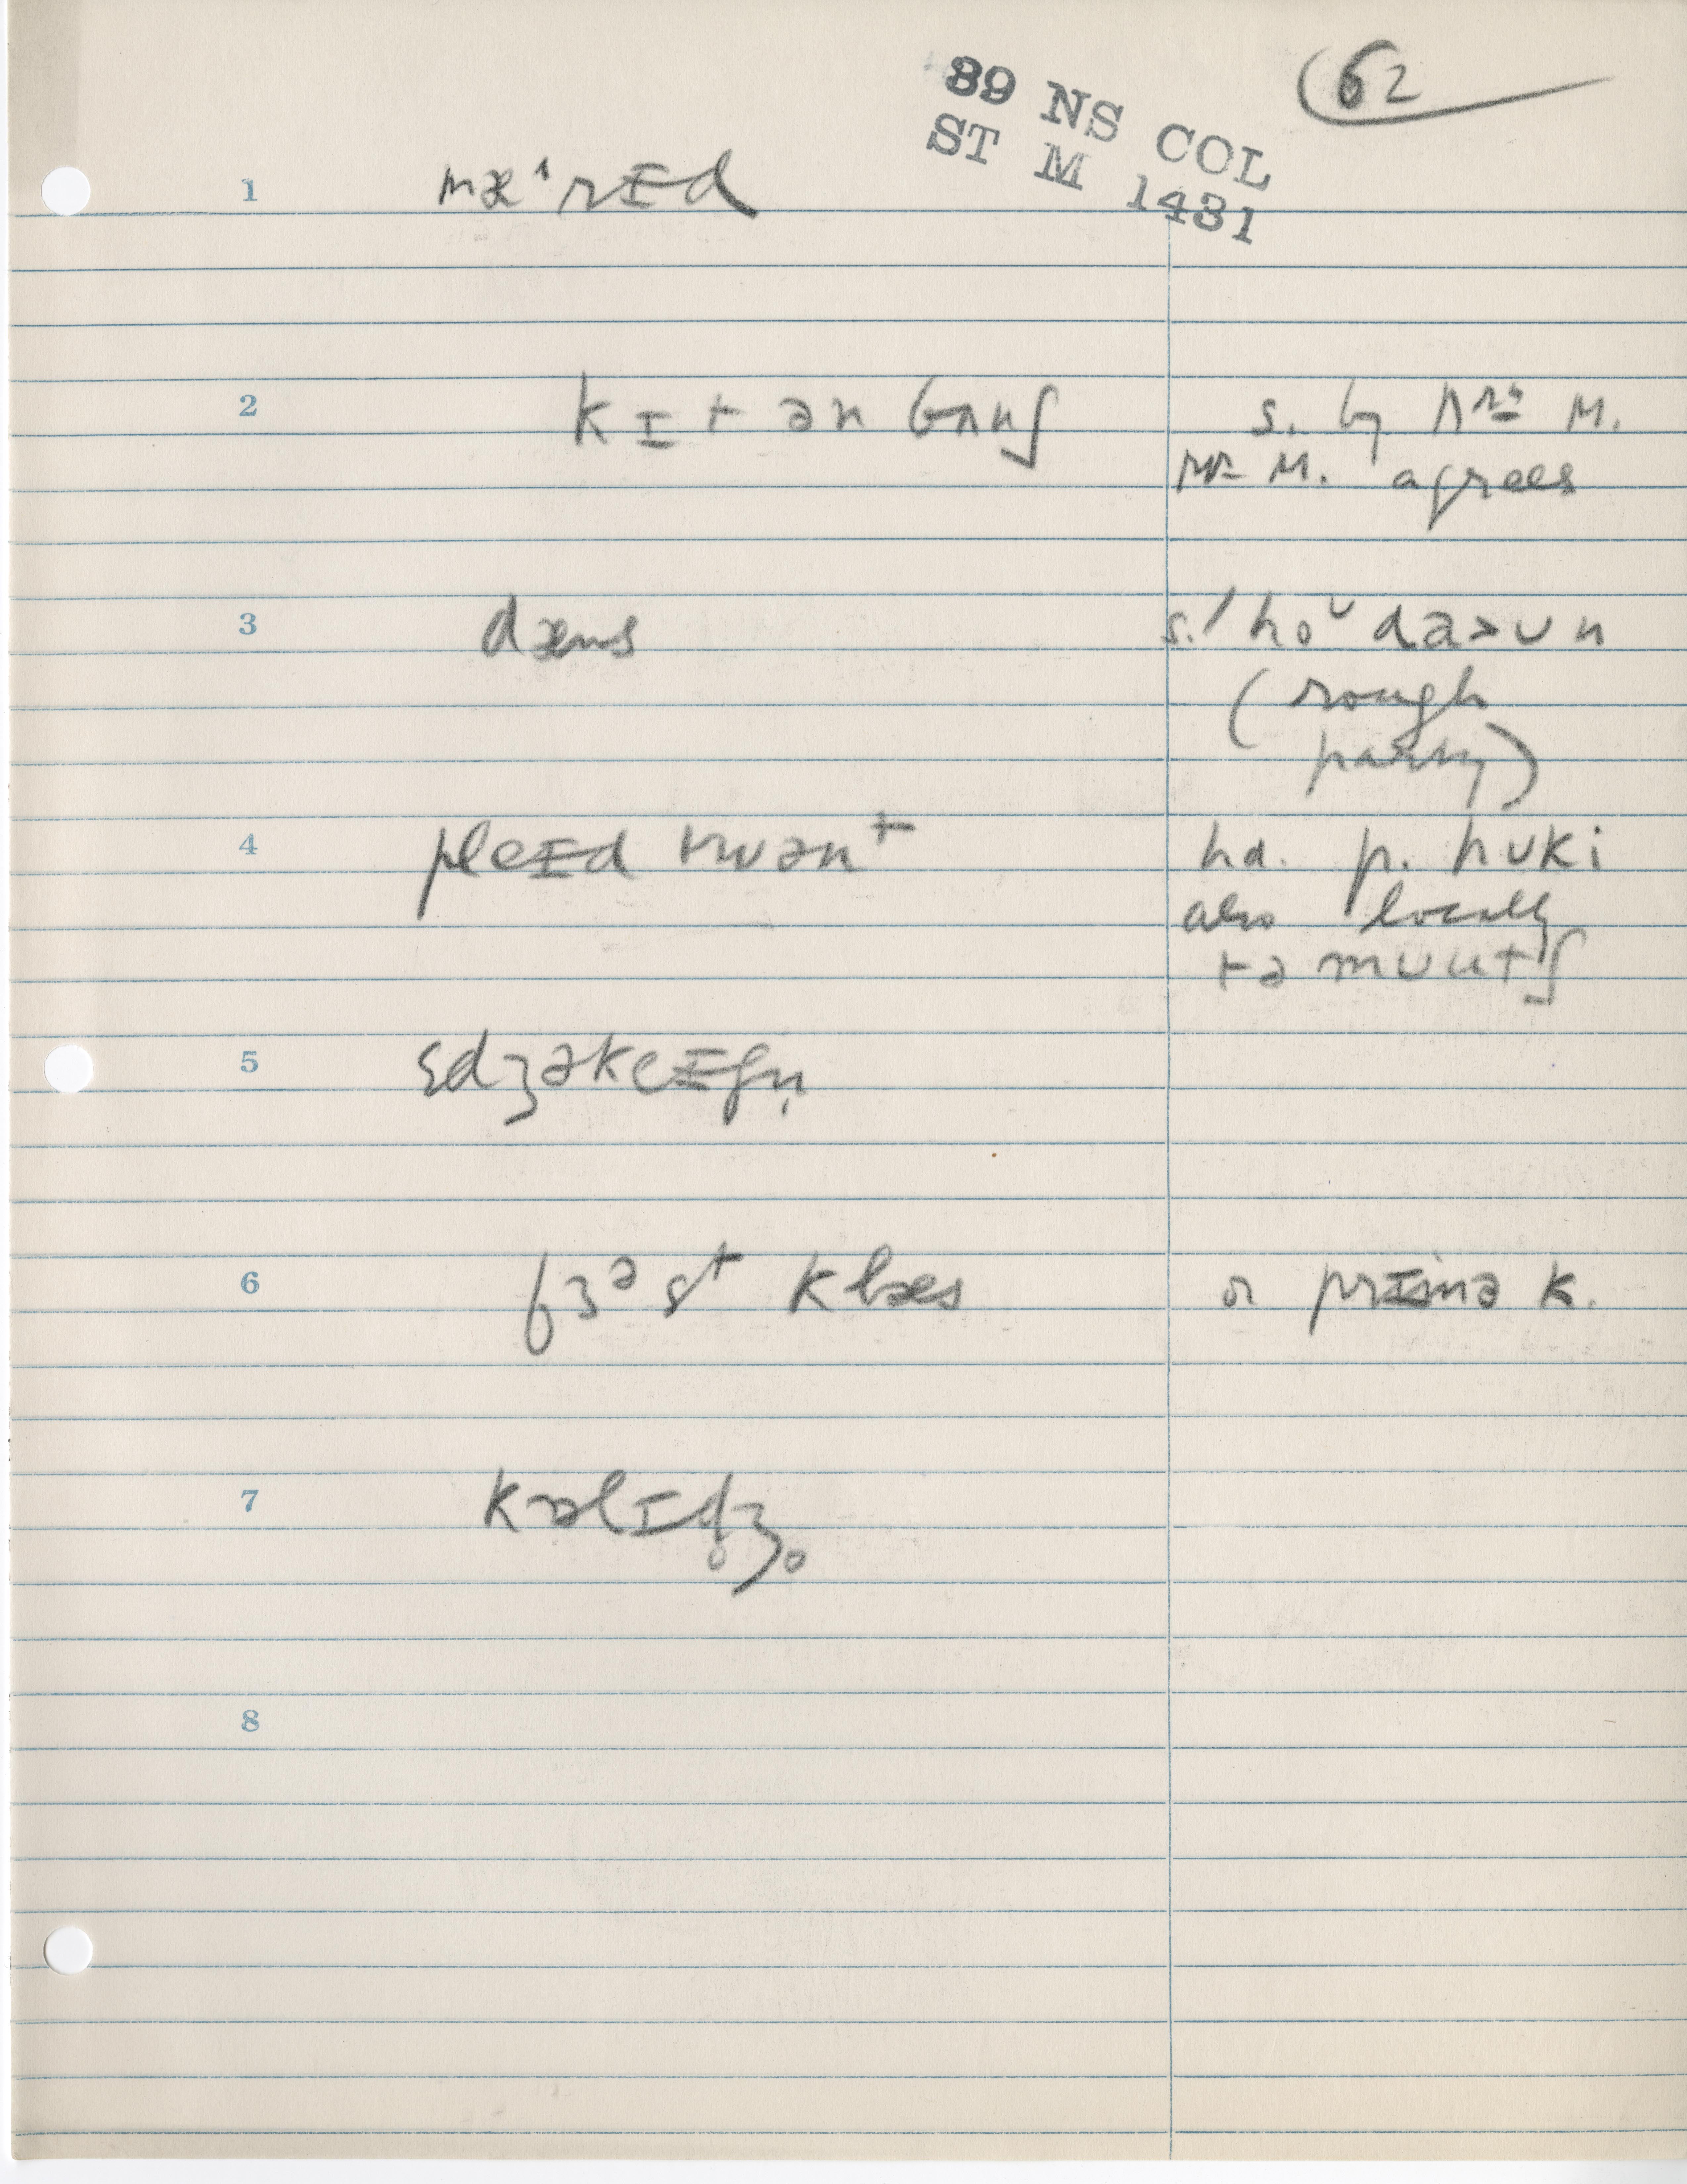 62
89 NS COL
ST M 1431
1 mæ^rɪd
2 kɪt ən bʌnʃ s. by Mrs M.
Mr M. agrees
3 dæns s./hoᴜdaᴜn
(rough
party)
4 pleɪd truənt hd. p. hᴜki
also locally
tə muutʃ
5 ɛdʒəkeɪʃn̩
6 fɜəst klæs or prɪmə k.
7 kɒlɪd̥ʒ̥
8